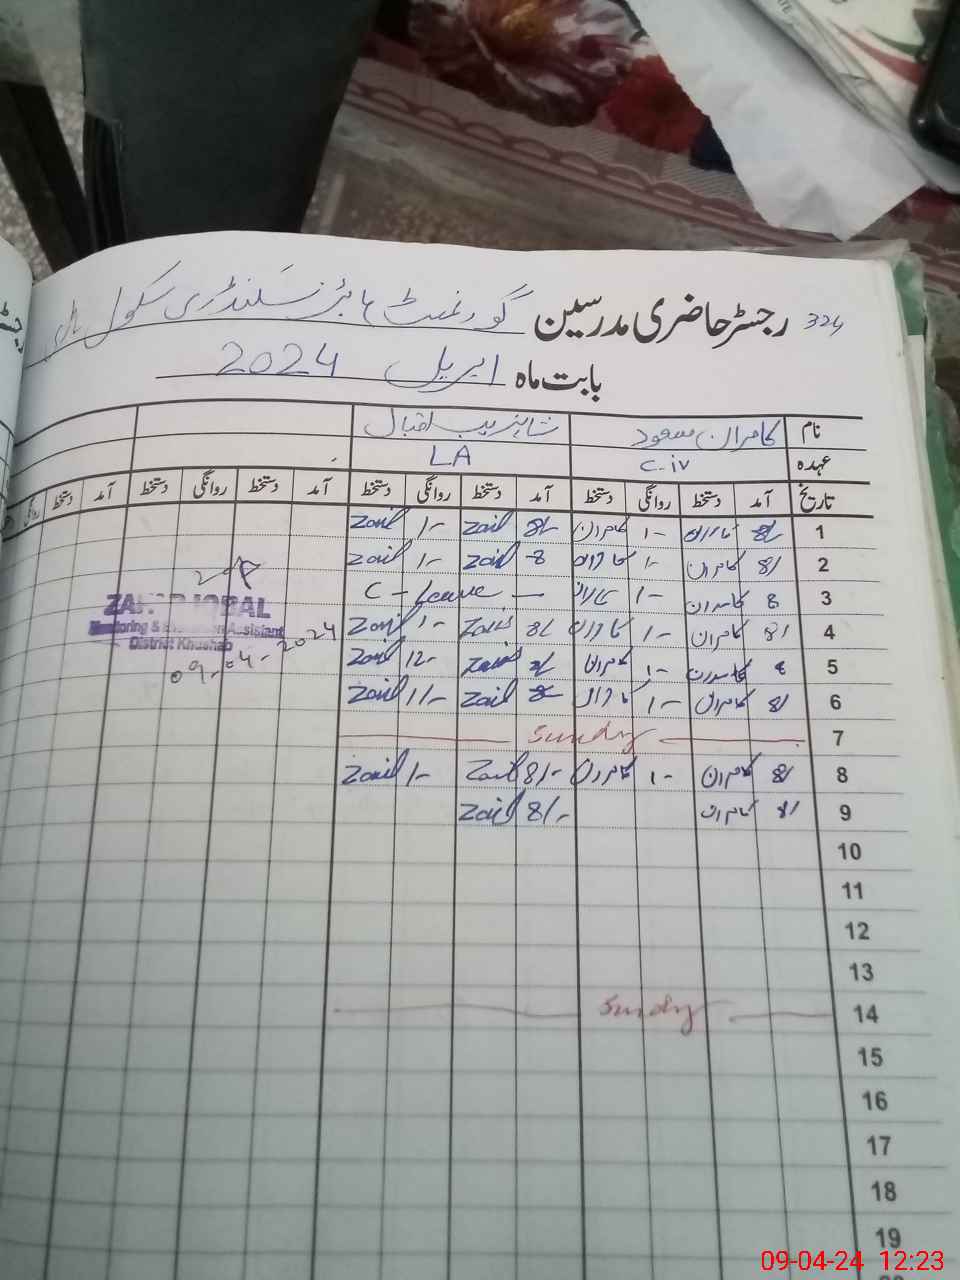 324 رجسٹر حاضری مدرسین گورنمنٹ ہائر سیکنڈری سکول
بابت ماہ اپریل 2024
نام کامران مسعود شاہزیب اقبال
عہدہ C-iv LA
تاریخ آمد دستخط روانگی دستخط آمد دستخط روانگی دستخط آمد دستخط روانگی دستخط آمد دستخط روانگی
1 8/- کامران 1- کامران 8/- Zaib 1-
2 8/ کامران 1- کامران 8 Zaib 1- Zaib
3 8 کامران 1- کامران — C - Leave —
4 8/ کامران 1- کامران 8/ Zaib 1- Zaib
5 8 کامران 1- کامران 8/ Zaib 12- Zaib
6 8/ کامران 1- کامران 8 Zaib 11- Zaib
7 Sunday
8 8/ کامران 1- کامران 8/- Zaib 1- Zaib
9 8/ کامران 8/- Zaib
10
11
12
13
14 Sunday
15
16
17
18
19
ZAFAR IQBAL
Monitoring & Evaluation Assistant
District Khushab
09-04-2024
09-04-24 12:23